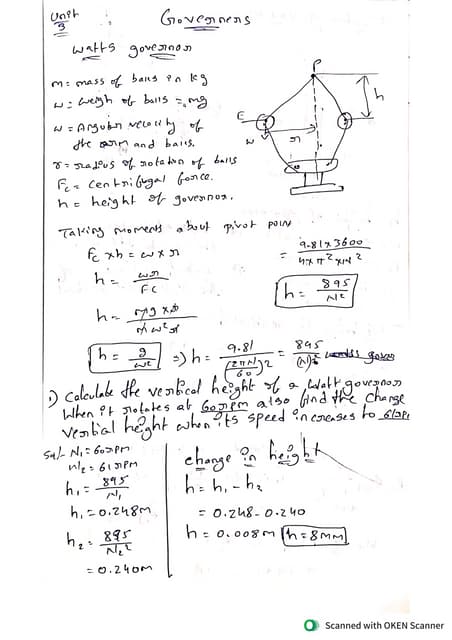 Unit
3
Governers
Watts governor
m = mass of balls in kg
w = weigh of balls = mg
ω = Angular velocity of
the arm and balls.
r = radius of rotation of balls
Fc = centrifugal force.
h = height of governor.
P
h
E
w
r
Taking moments about pivot point
Fc × h = w × r
h = wr / Fc
h = mg × r / m ω² r
h = g / ω² => h = 9.81 / (2πN/60)² = 895 / (N)²
= 9.81 × 3600 / 4 × π² × N²
h = 895 / N²
1) Calculate the vertical height of a Watt governor
When it rotates at 60rpm also find the change
vertial height when its speed increases to 61rpm
Sol- N₁ = 60rpm
N₂ = 61rpm
h₁ = 895 / N₁
h₁ = 0.248m
h₂ = 895 / N₂²
= 0.240m
change in height
h = h₁ - h₂
= 0.248 - 0.240
h = 0.008m h = 8mm
Scanned with OKEN Scanner